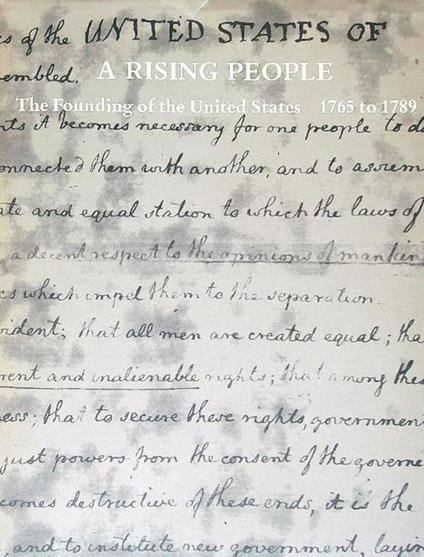 es of the UNITED STATES OF
embled.
A RISING PEOPLE
The Founding of the United States 1765 to 1789
nts it becomes necessary for one people to di
onnected them with another, and to assum
ate and equal station to which the laws of
a decent respect to the opinions of mankin
es which impel them to the separation.
vident; that all men are created equal; tha
rent and inalienable rights; that among thes
ess; that to secure these rights, government
just powers from the consent of the governe
comes destructive of these ends, it is the
, and to institute new government, layin